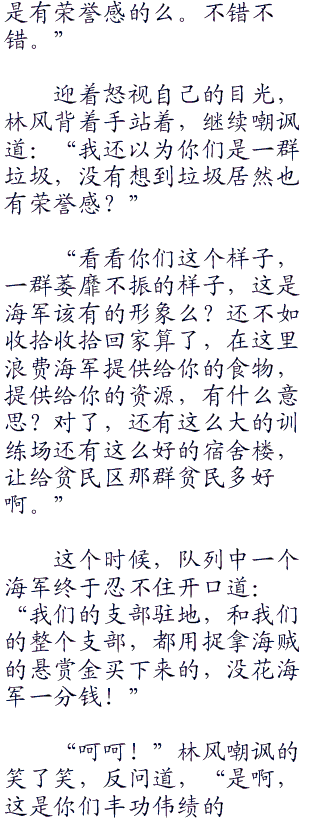 是有荣誉感的么。不错不
错。”
迎着怒视自己的目光，
林风背着手站着，继续嘲讽
道：“我还以为你们是一群
垃圾，没有想到垃圾居然也
有荣誉感？”
“看看你们这个样子，
一群萎靡不振的样子，这是
海军该有的形象么？还不如
收拾收拾回家算了，在这里
浪费海军提供给你的食物，
提供给你的资源，有什么意
思？对了，还有这么大的训
练场还有这么好的宿舍楼，
让给贫民区那群贫民多好
啊。”
这个时候，队列中一个
海军终于忍不住开口道：
“我们的支部驻地，和我们
的整个支部，都用捉拿海贼
的悬赏金买下来的，没花海
军一分钱！”
“呵呵！”林风嘲讽的
笑了笑，反问道，“是啊，
这是你们丰功伟绩的